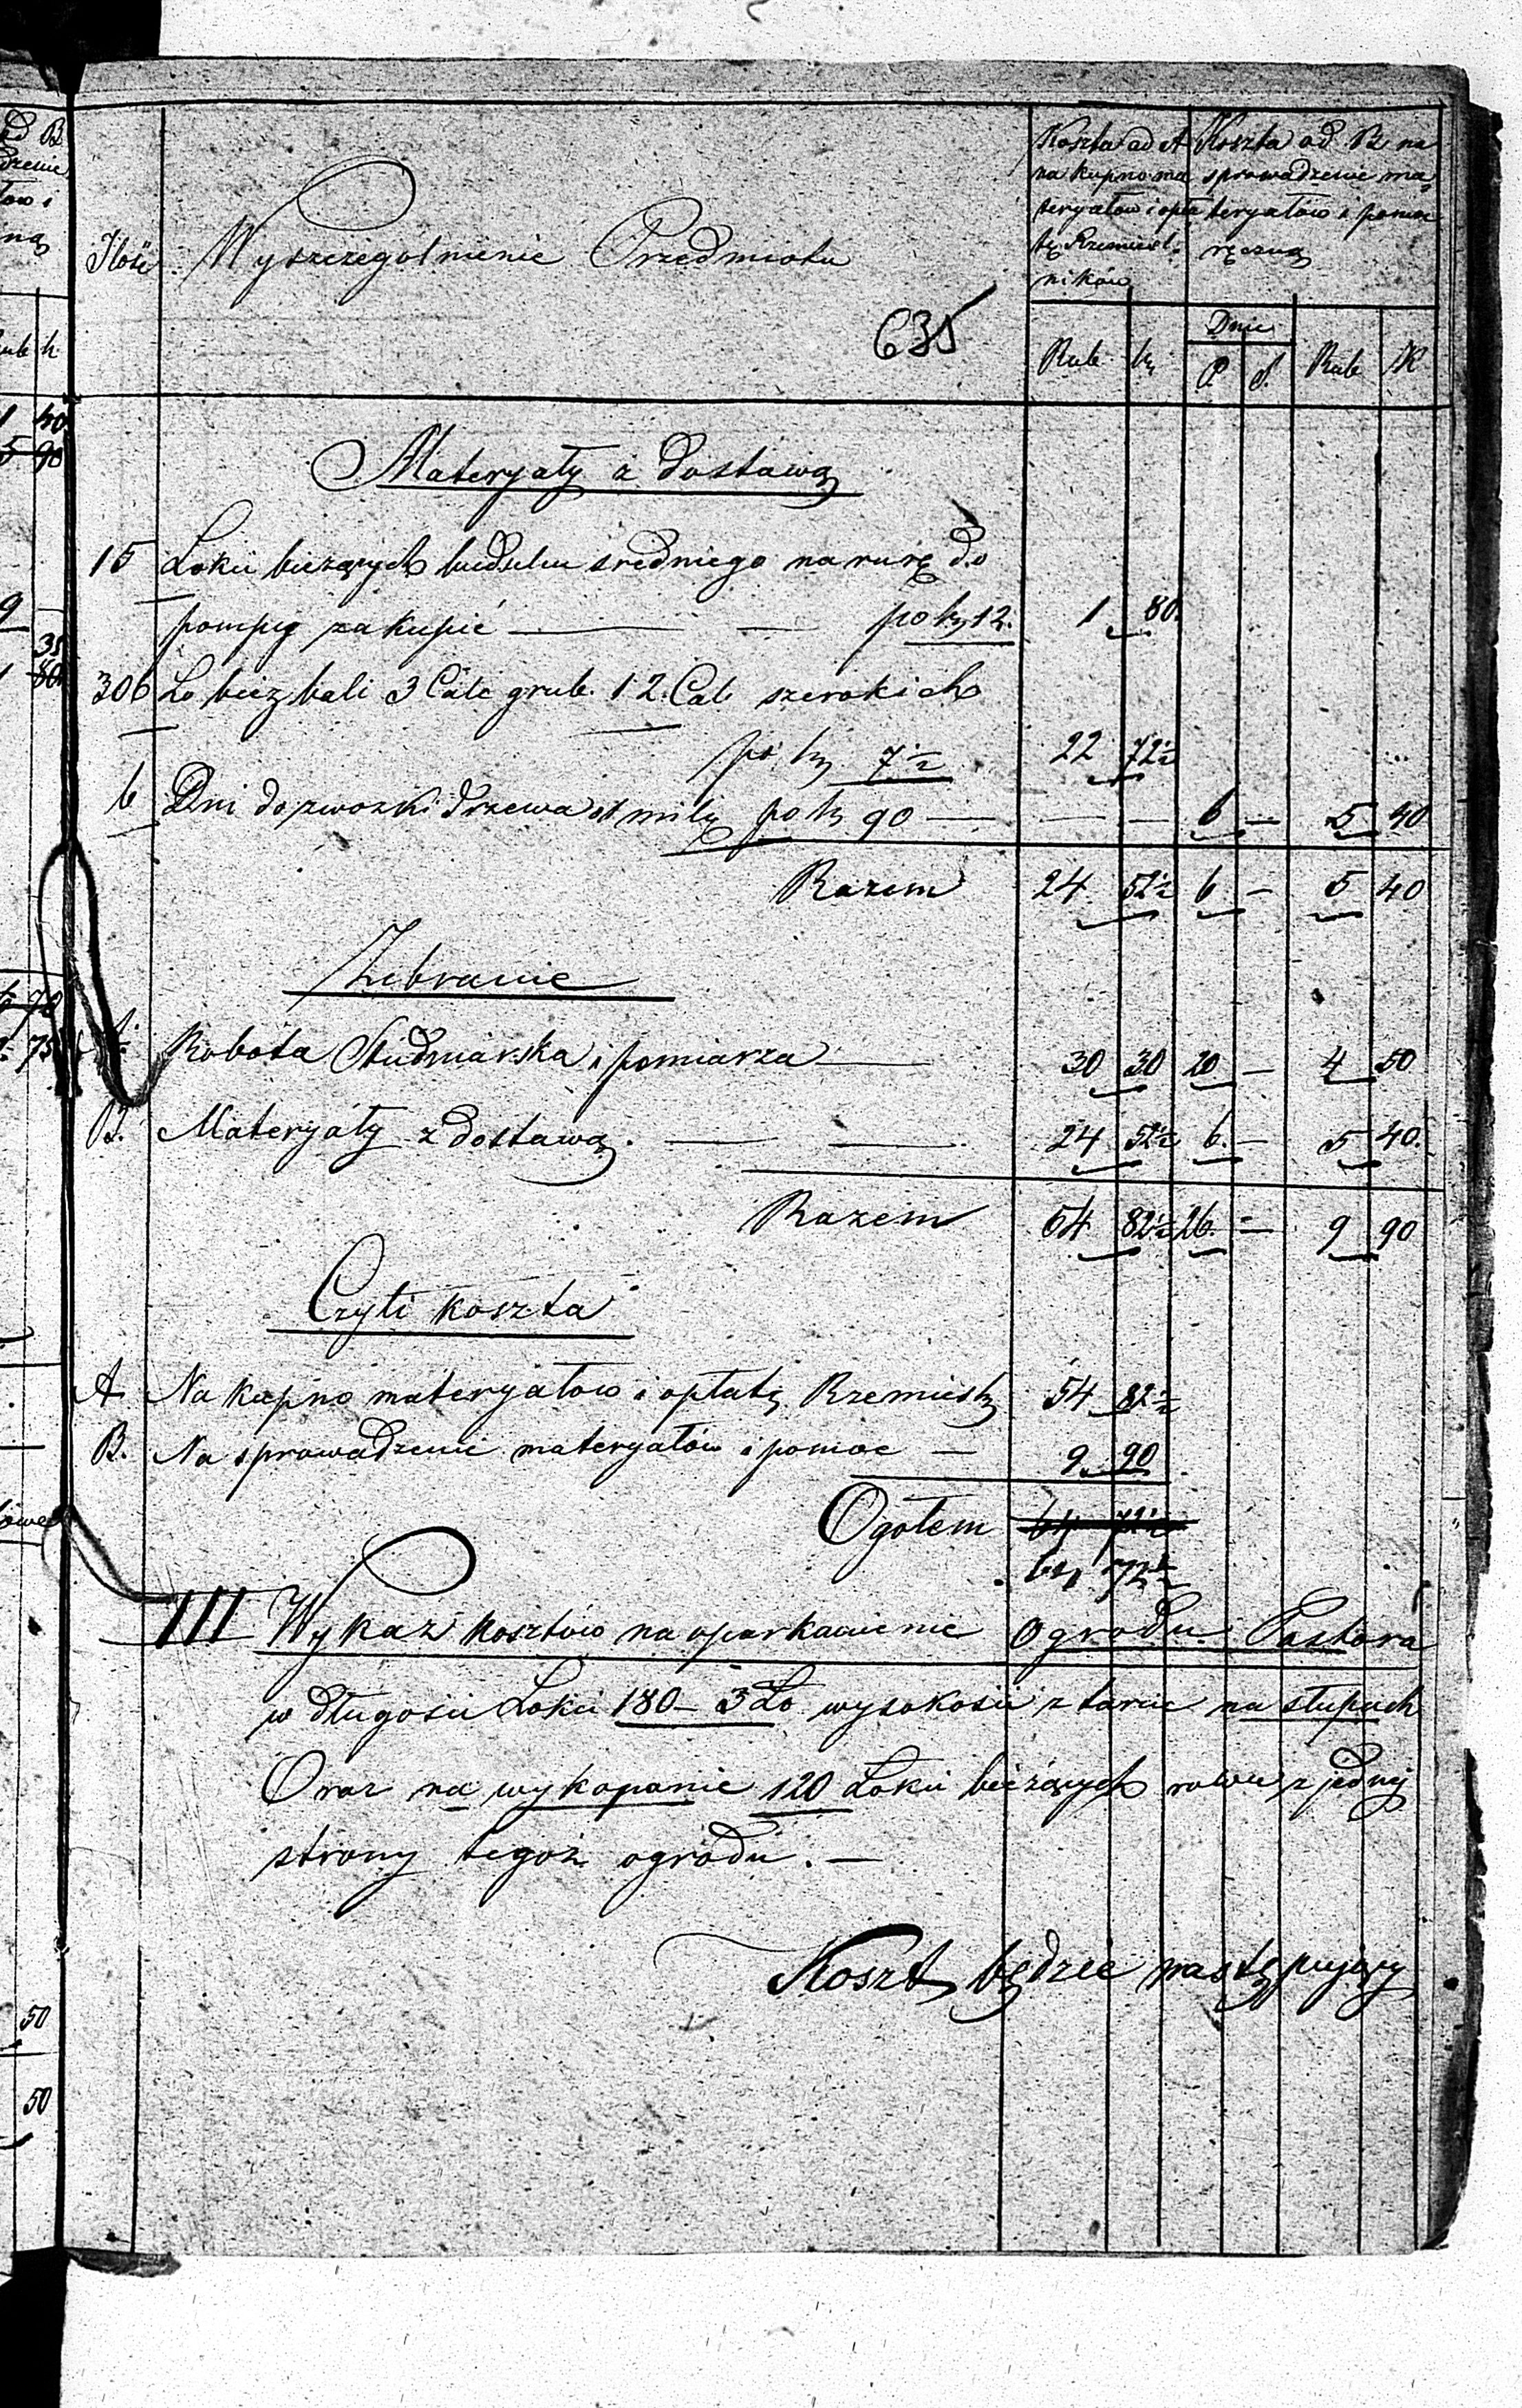 Ilość
Wyszczególnienie Przedmiotu
Koszta ad A
na kupno ma
teryałów i opła
tę Rzemieśl
ników
Koszta ad B na
sprowadzenie ma
teryałów i pomoc
ręczną
635
Rub k
Dnie
P. S.
Rub K
Materyały z dostawą
15 Łokci bieżących średniego na rurę do
pompy zakupić — po k 12. 1 80.
306 Ło bież bali 3 Cale grub. 12. Cal szerokich
po k 7½ 22 72½
6 Dni do zwozki drzewa ot mily po k 90 — — — 6 — 5 40
Razem 24 52½ 6 — 5 40
Zebranie
A. Robota Studniarska i pomiarza — 30 30 20 — 4 50
B. Materyały z dostawą. — — 24 52½ 6. — 5 40.
Razem 54 82½ 26. — 9 90
Czyli koszta
A Na kupno materyałow i opłatę Rzemieśl 54 82½
B. Na sprowadzenie materyałów i pomoc — 9 90
Ogołem 64 72½
64 72½
III Wykaz kosztów na oparkanienie Ogrodu Pastora
w długości Łokci 180 – 3 Ło wysokości z tarcic na słupach
Oraz na wykopanie 120 Łokci bieżących rowu z jednej
strony tegoż ogrodu. —
Koszt będzie następujący